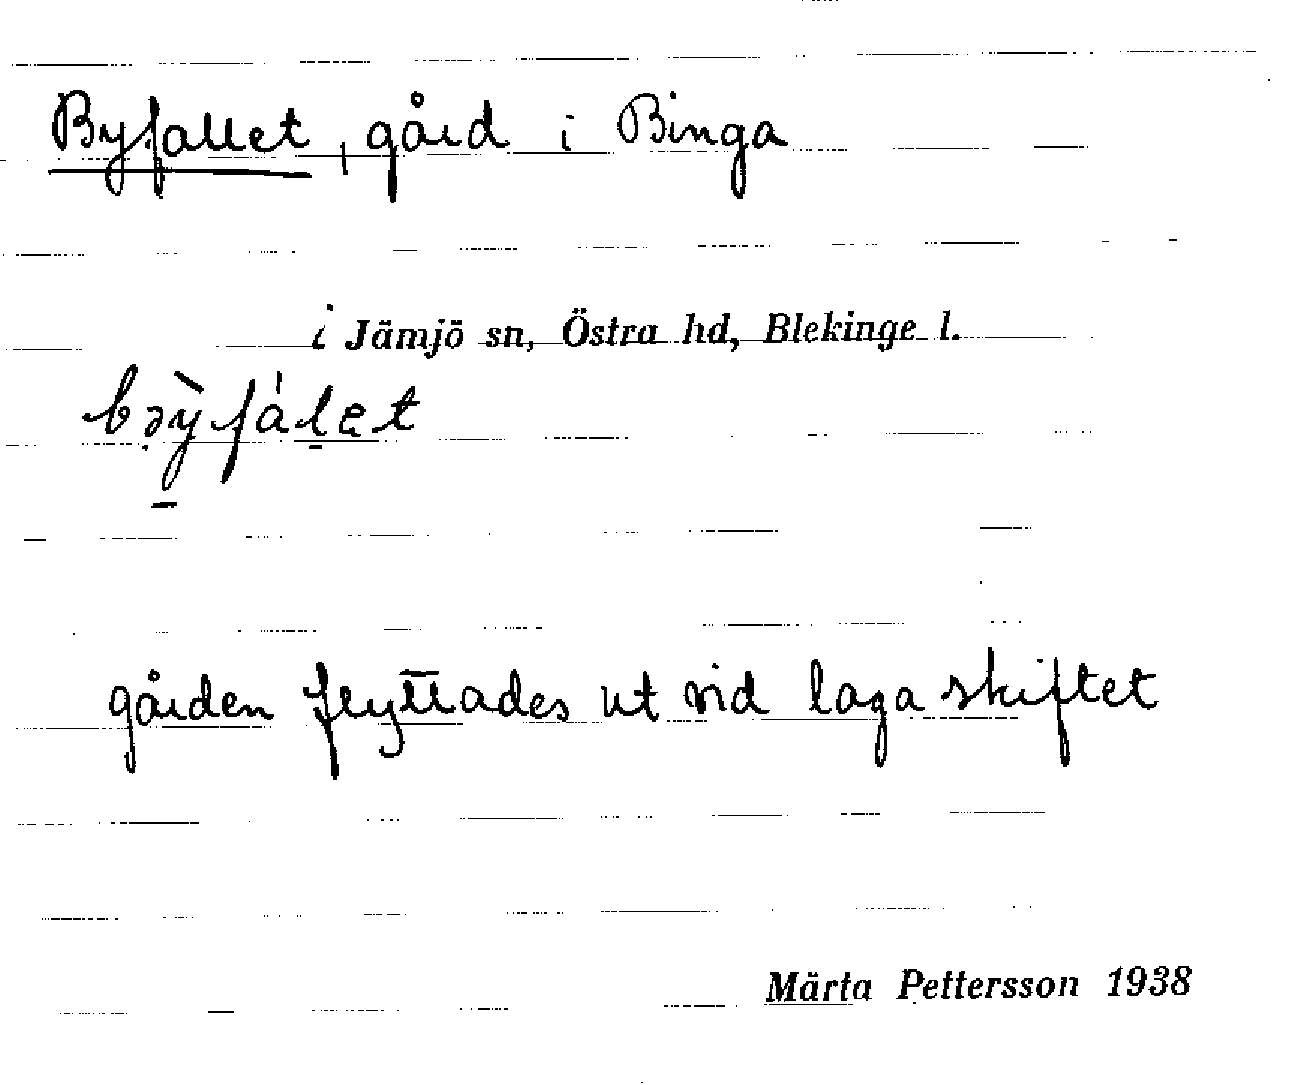 Byfallet, gård i Binga
i Jämjö sn, Östra hd, Blekinge l.
gården flyttades ut vid laga skiftet
Märta Pettersson 1938